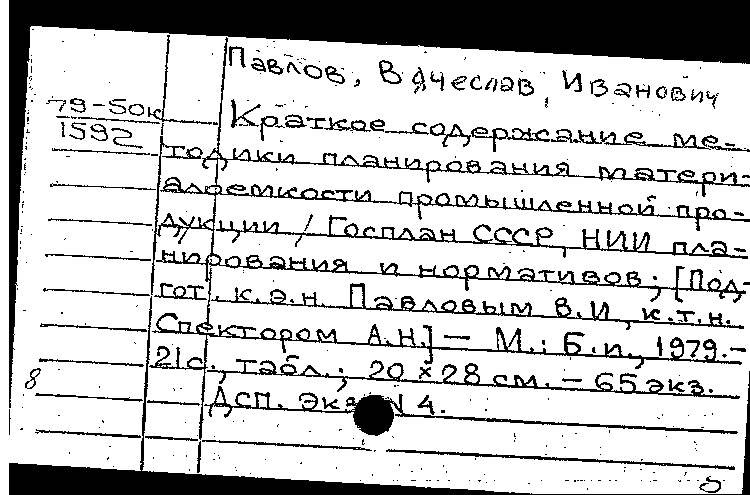 Павлов, Вячеслав Иванович
79-50к
1592
Краткое содержание ме-
тодики планирования матери-
алоемкости промышленной про-
дукции / Госплан СССР, НИИ пла-
нирования и нормативов; [Под-
гот. к.э.н. Павловым В.И., к.т.н.
Спектором А.Н.] — М.: Б.и., 1979.-
21с., табл.; 20×28 см. — 65 экз.
8
Дсп. Экз N 4.